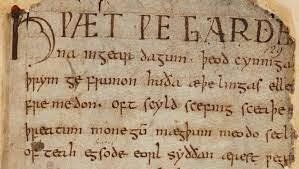 HǷÆT ǷE GARDE
na ingear dagum. þeod cyninga
þrym ge frunon huða æþelingas elle
fremedon. oft scyld scefing sceaþe
þreatum monegū mægþum meodo setl
of teah egsode eorl syððan ærest ƿe